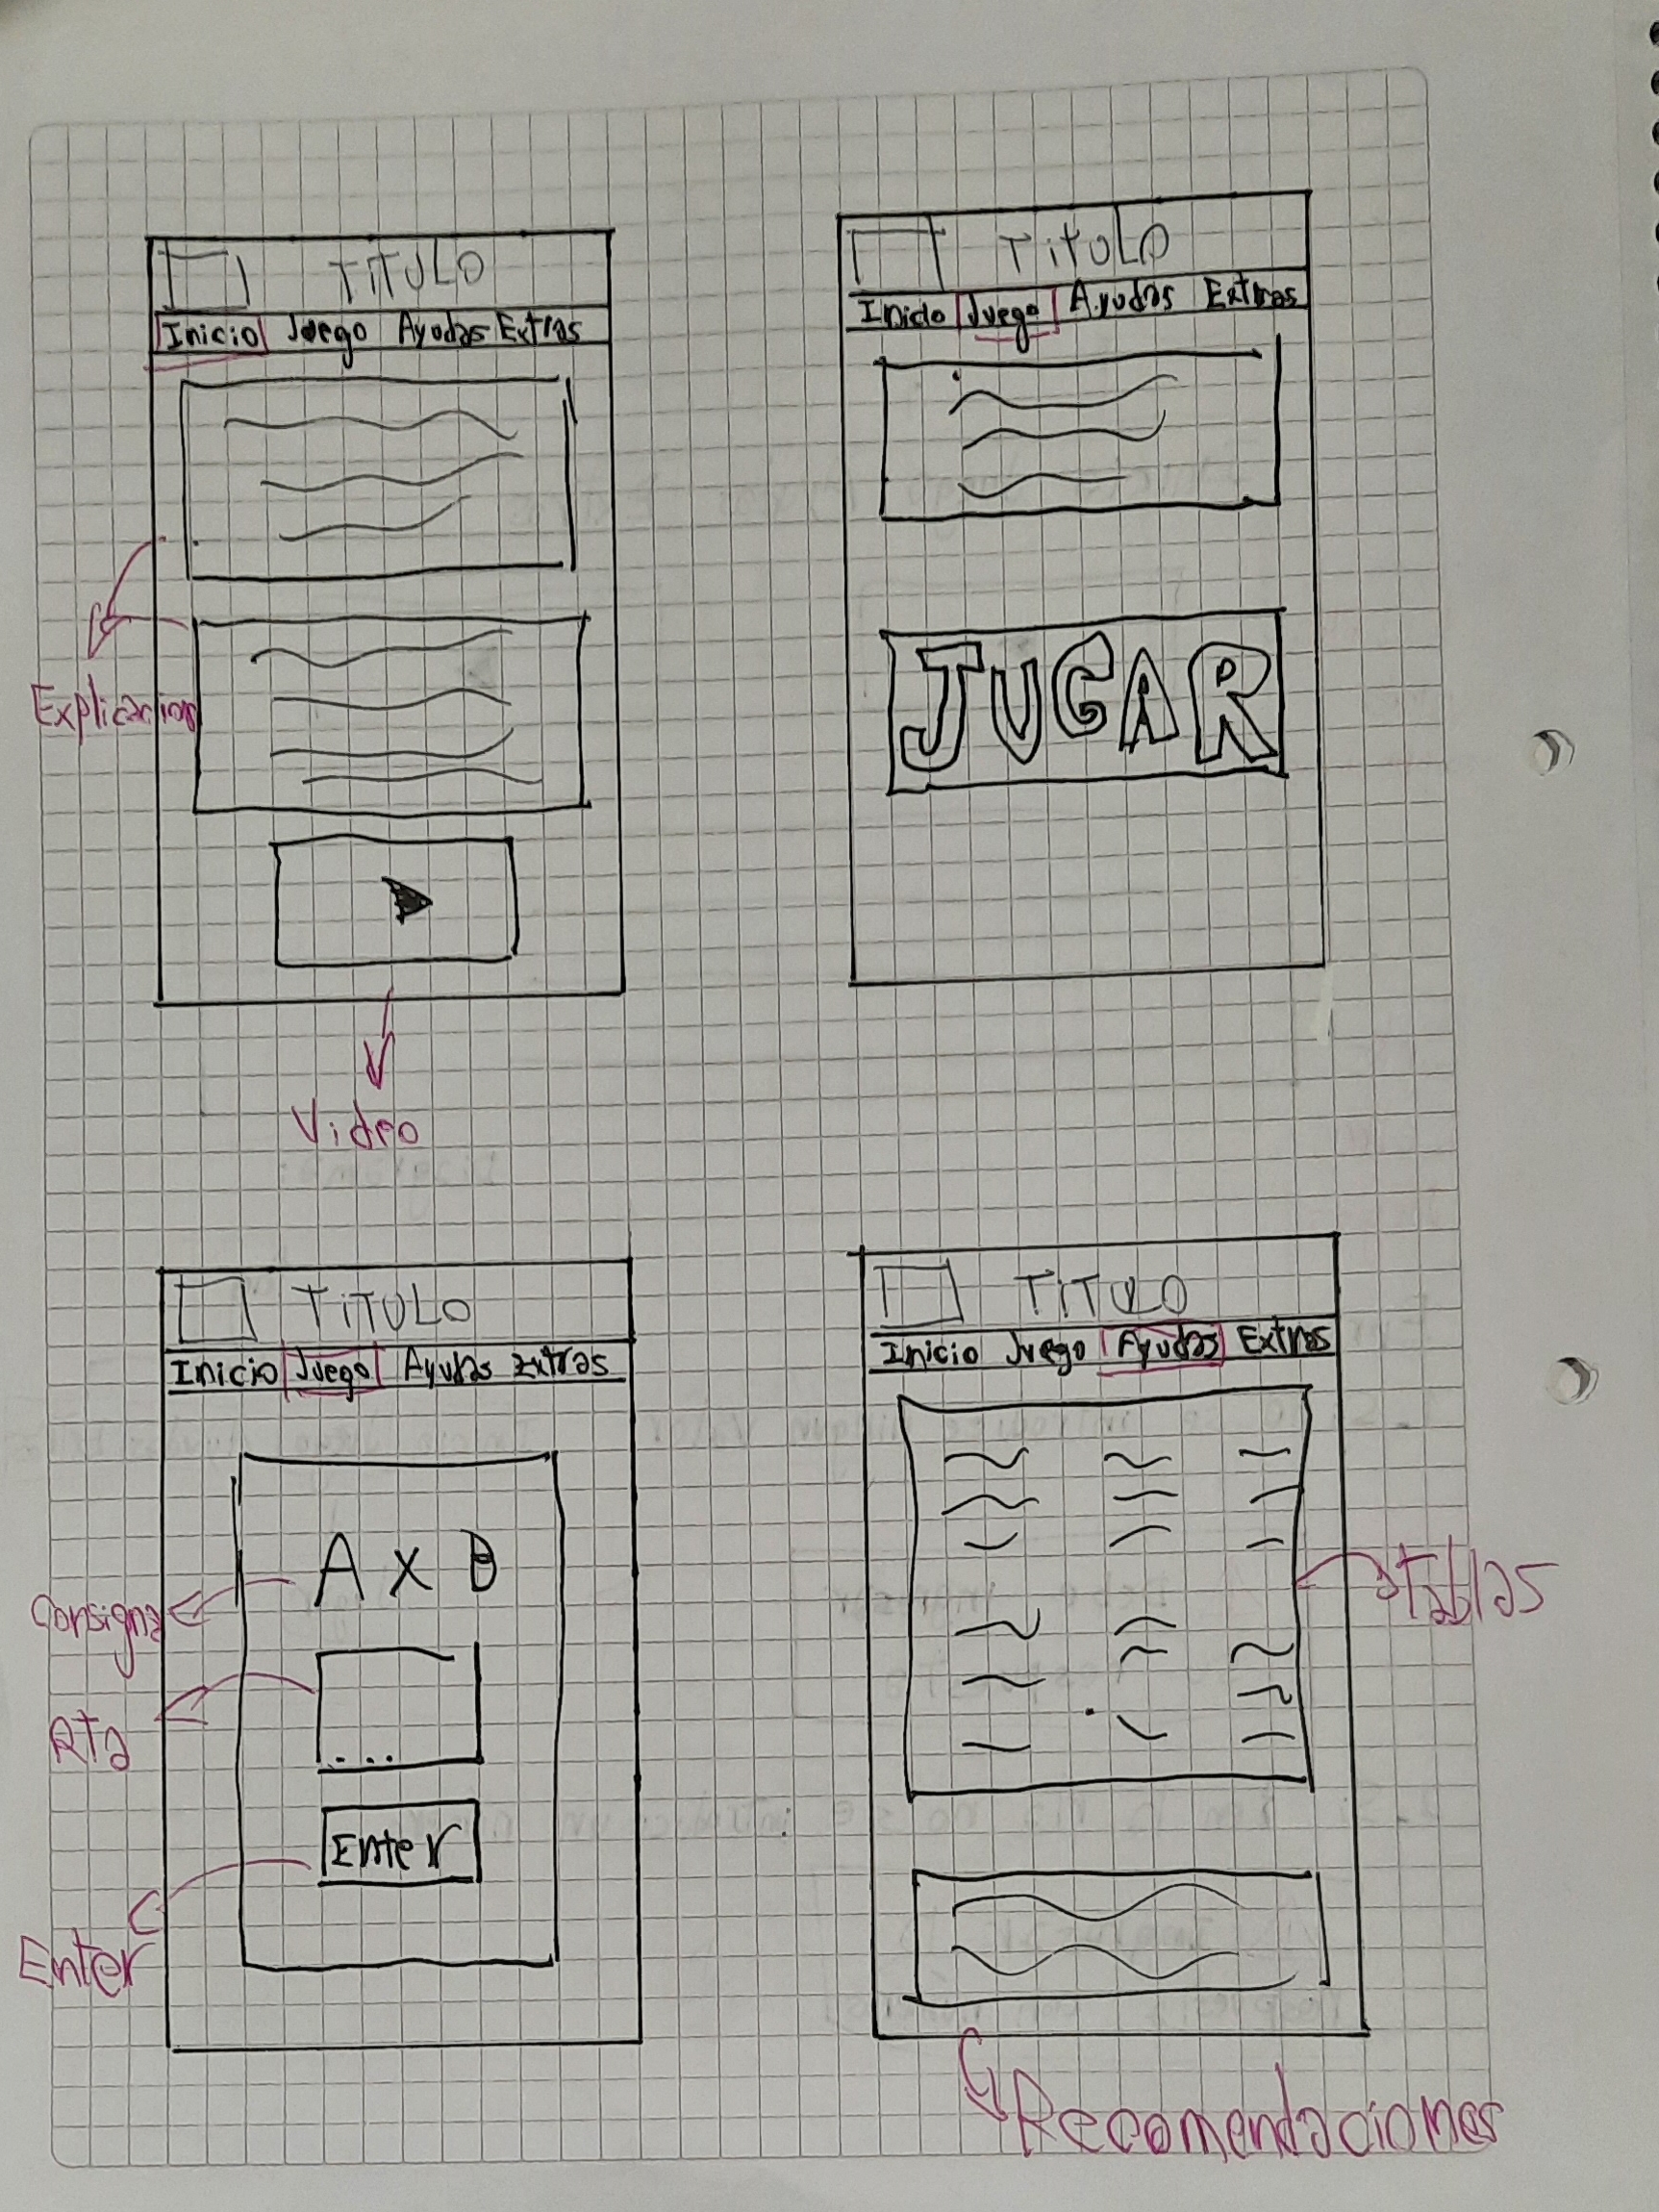 TITULO
Inicio Juego Ayudas Extras
Explicacion
Video
TITULO
Inicio Juego Ayudas Extras
JUGAR
TITULO
Inicio Juego Ayudas Extras
A x B
Consigna
Rta
...
Enter
Enter
TITULO
Inicio Juego Ayudas Extras
Tablas
Recomendaciones